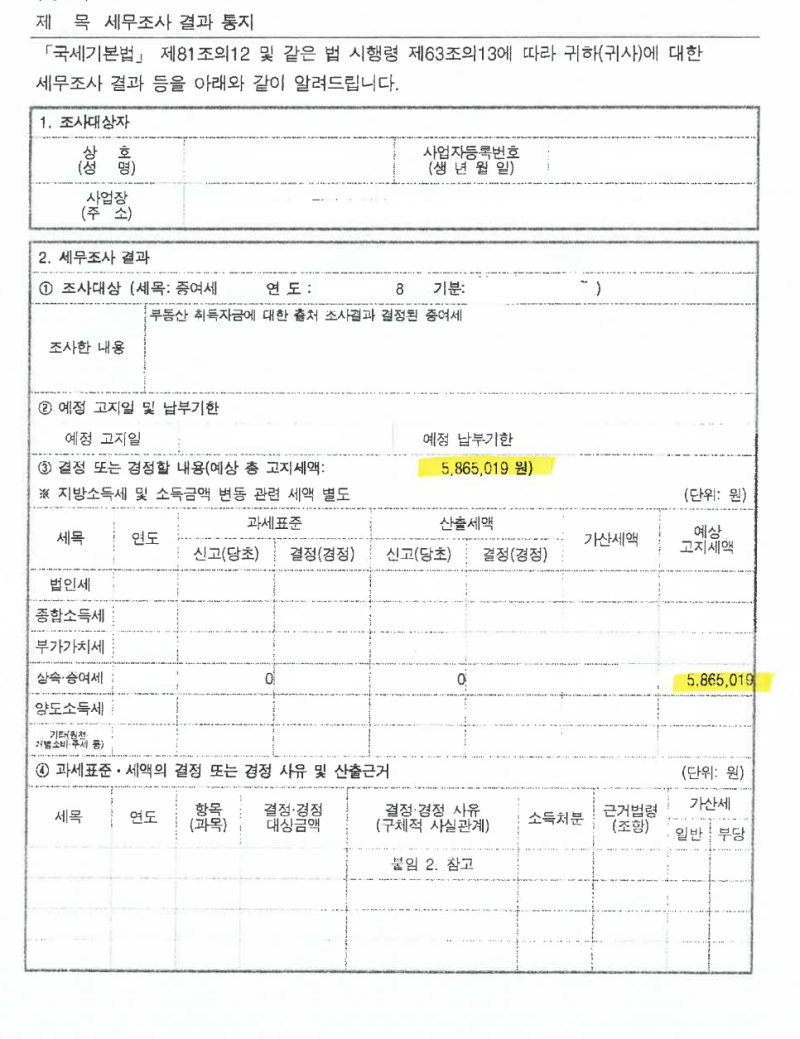 제 목 세무조사 결과 통지
「국세기본법」 제81조의12 및 같은 법 시행령 제63조의13에 따라 귀하(귀사)에 대한
세무조사 결과 등을 아래와 같이 알려드립니다.
1. 조사대상자
상 호
(성 명)
사업자등록번호
(생 년 월 일)
사업장
(주 소)
2. 세무조사 결과
① 조사대상 (세목: 증여세 연 도 : 8 기분: ~ )
조사한 내용
부동산 취득자금에 대한 출처 조사결과 결정된 증여세
② 예정 고지일 및 납부기한
예정 고지일 예정 납부기한
③ 결정 또는 경정할 내용(예상 총 고지세액: 5,865,019 원)
※ 지방소득세 및 소득금액 변동 관련 세액 별도 (단위: 원)
세목 연도 과세표준 산출세액 가산세액 예상
고지세액
신고(당초) 결정(경정) 신고(당초) 결정(경정)
법인세
종합소득세
부가가치세
상속·증여세 0 0 5,865,019
양도소득세
기타(원천·
개별소비·주세 등)
④ 과세표준·세액의 결정 또는 경정 사유 및 산출근거 (단위: 원)
세목 연도 항목
(과목) 결정·경정
대상금액 결정·경정 사유
(구체적 사실관계) 소득처분 근거법령
(조항) 가산세
일반 부당
붙임 2. 참고